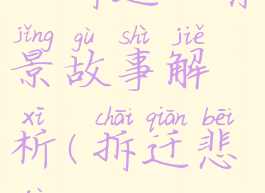 jǐng gù shì jiě
景故事解
xī chāi qiān bēi
析(拆迁悲